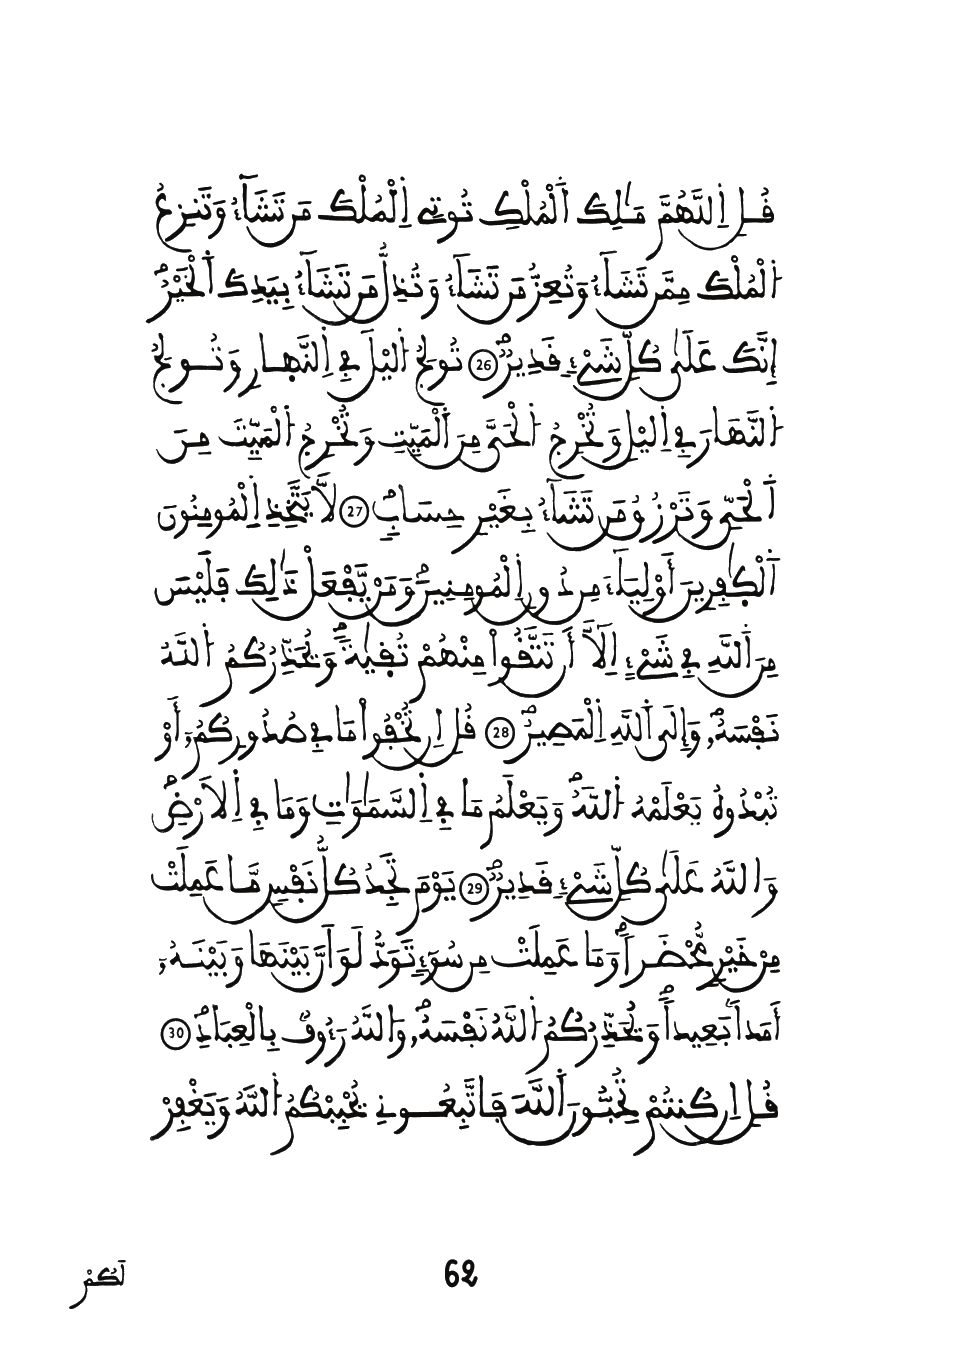 قُلِ اِللَّهُمَّ مَٰلِكَ اَلْمُلْكِ تُوتِے اِلْمُلْكَ مَن تَشَآءُ وَتَنزِعُ
اُلْمُلْكَ مِمَّن تَشَآءُ وَتُعِزُّ مَن تَشَآءُ وَتُذِلُّ مَن تَشَآءُ بِيَدِكَ اَلْخَيْرُ
إِنَّكَ عَلَيٰ كُلِّ شَےْءٖ قَدِيرٞ 26 تُولِجُ اُليْلَ فِے اِلنَّهارِ وَتُولِجُ
اُلنَّهَارَ فِے اِليْلِ وَتُخْرِجُ اُلْحَيَّ مِنَ اَلْمَيِّتِ وَتُخْرِجُ اُلْمَيِّتَ مِنَ
اَلْحَيِّ وَتَرْزُقُ مَن تَشَآءُ بِغَيْرِ حِسَابٖ 27 لاَّ يَتَّخِذِ اِلْمُومِنُونَ
اَلْكٰفِرِينَ أَوْلِيَآءَ مِن دُونِ اِلْمُومِنِينَ وَمَنْ يَّفْعَلْ ذَٰلِكَ فَلَيْسَ
مِنَ اَللَّهِ فِے شَےْءٍ اِلَّآ أَن تَتَّقُواْ مِنْهُمْ تُقيٰةٗ وَيُحَذِّرُكُمُ اُللَّهُ
نَفْسَهُۥ وَإِلَي اَللَّهِ اِلْمَصِيرُ 28 قُلِ اِن تُخْفُواْ مَا فِے صُدُورِكُمُۥٓ أَوْ
تُبْدُوهُ يَعْلَمْهُ اُللَّهُ وَيَعْلَمُ مَا فِے اِلسَّمَٰوَٰتِ وَمَا فِے اِلَارْضِ
وَاللَّهُ عَلَيٰ كُلِّ شَےْءٖ قَدِيرٞ 29 يَوْمَ تَجِدُ كُلُّ نَفْسٖ مَّا عَمِلَتْ
مِنْ خَيْرٖ مُّحْضَراٗ وَمَا عَمِلَتْ مِن سُوٓءٖ تَوَدُّ لَوَ اَنَّ بَيْنَهَا وَبَيْنَهُۥٓ
أَمَداَۢ بَعِيداٗ وَيُحَذِّرُكُمُ اُللَّهُ نَفْسَهُۥ وَاللَّهُ رَءُوفُۢ بِالْعِبَادِ 30
قُلِ اِن كُنتُمْ تُحِبُّونَ اَللَّهَ فَاتَّبِعُونِے يُحْبِبْكُمُ اُللَّهُ وَيَغْفِرْ
لَكُمْ
62